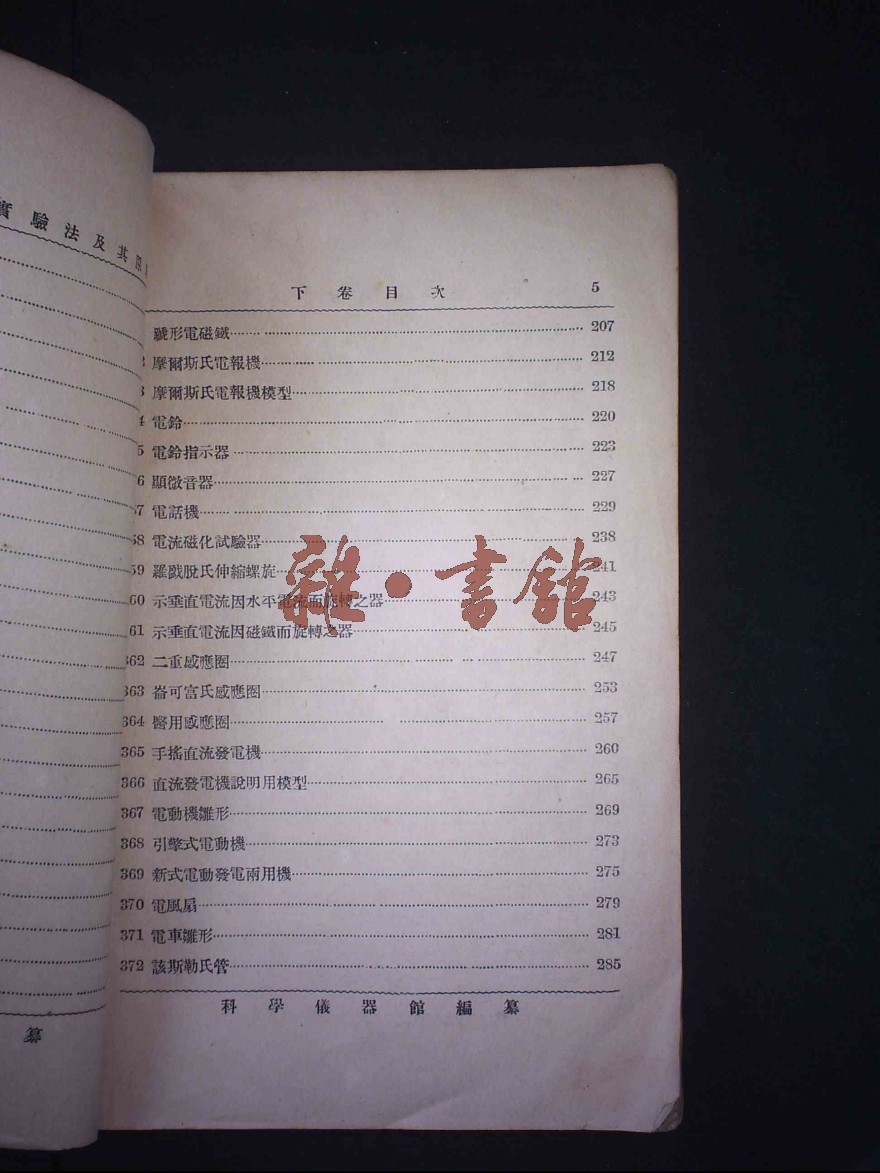 實驗法及其
纂
下卷目次 5
形電磁鐵 207
2 摩爾斯氏電報機 212
3 摩爾斯氏電報機模型 218
4 電鈴 220
5 電鈴指示器 223
6 顯微音器 227
57 電話機 229
58 電流磁化試驗器 238
59 羅戲脫氏伸縮螺旋 241
60 示垂直電流因水平電流而旋轉之器 243
61 示垂直電流因磁鐵而旋轉之器 245
362 二重感應圈 247
363 崙可富氏感應圈 253
364 醫用感應圈 257
365 手搖直流發電機 260
366 直流發電機說明用模型 265
367 電動機雛形 269
368 引擎式電動機 273
369 新式電動發電兩用機 275
370 電風扇 279
371 電車雛形 281
372 該斯勒氏管 285
科學儀器館編纂
雜·書館